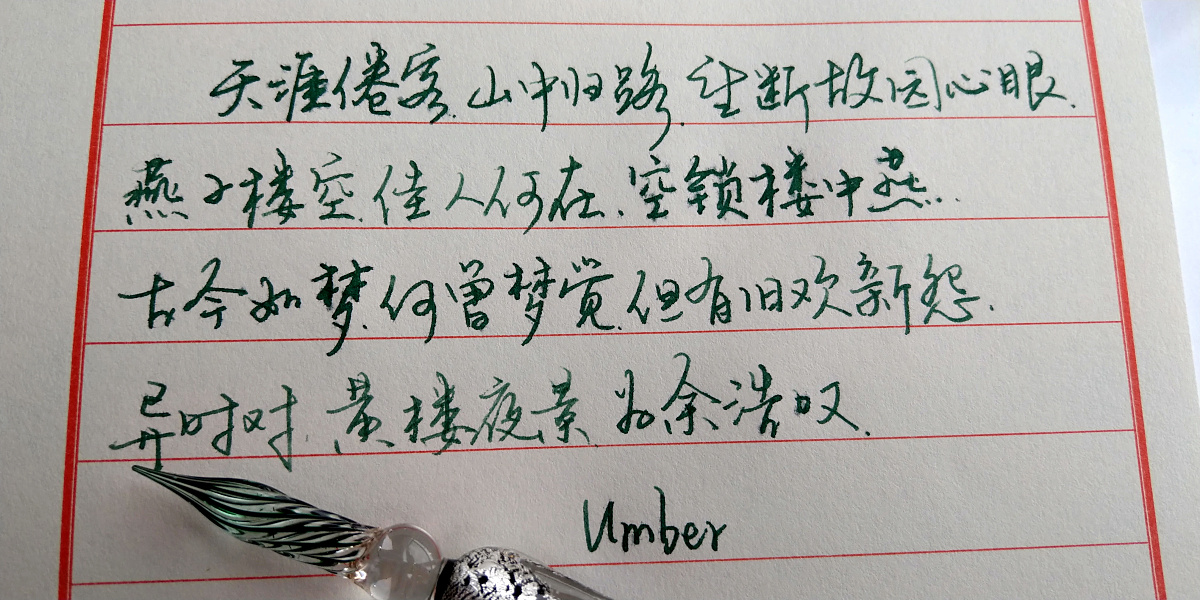 天涯倦客.山中归路.望断故园心眼.
燕子楼空.佳人何在.空锁楼中燕.
古今如梦.何曾梦觉.但有旧欢新怨.
异时对.黄楼夜景.为余浩叹.
Umber